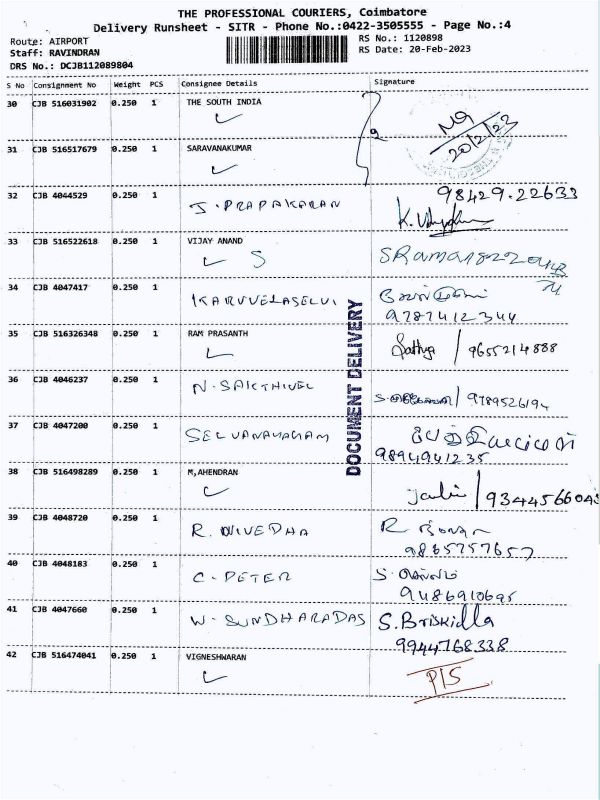 THE PROFESSIONAL COURIERS, Coimbatore
Delivery Runsheet - SITR - Phone No.:0422-3505555 - Page No.:4
Route: AIRPORT
RS No.: 1120898
Staff: RAVINDRAN
RS Date: 20-Feb-2023
DRS No.: DCJB112089804
S No Consignment No Weight PCS Consignee Details Signature
30 CJB 516031902 0.250 1 THE SOUTH INDIA
20/2/23
31 CJB 516517679 0.250 1 SARAVANAKUMAR
32 CJB 4044529 0.250 1 J. PRAPAKARAN 98429.22633
33 CJB 516522618 0.250 1 VIJAY ANAND
S
34 CJB 4047417 0.250 1 KARUVELASELVI
9787412344
35 CJB 516326348 0.250 1 RAM PRASANTH Sathya / 9655214888
36 CJB 4046237 0.250 1 N. SAKTHIVEL 9789526194
37 CJB 4047200 0.250 1 SELVANAYAGAM
9894941235
DOCUMENT DELIVERY
38 CJB 516498289 0.250 1 M,AHENDRAN
39 CJB 4048720 0.250 1 R. NIVEDHA
9865757657
40 CJB 4048183 0.250 1 C. PETER
9486910695
41 CJB 4047660 0.250 1 W. SUNDHARADAS S. Briskilla
9944768338
42 CJB 516474041 0.250 1 VIGNESHWARAN P/S